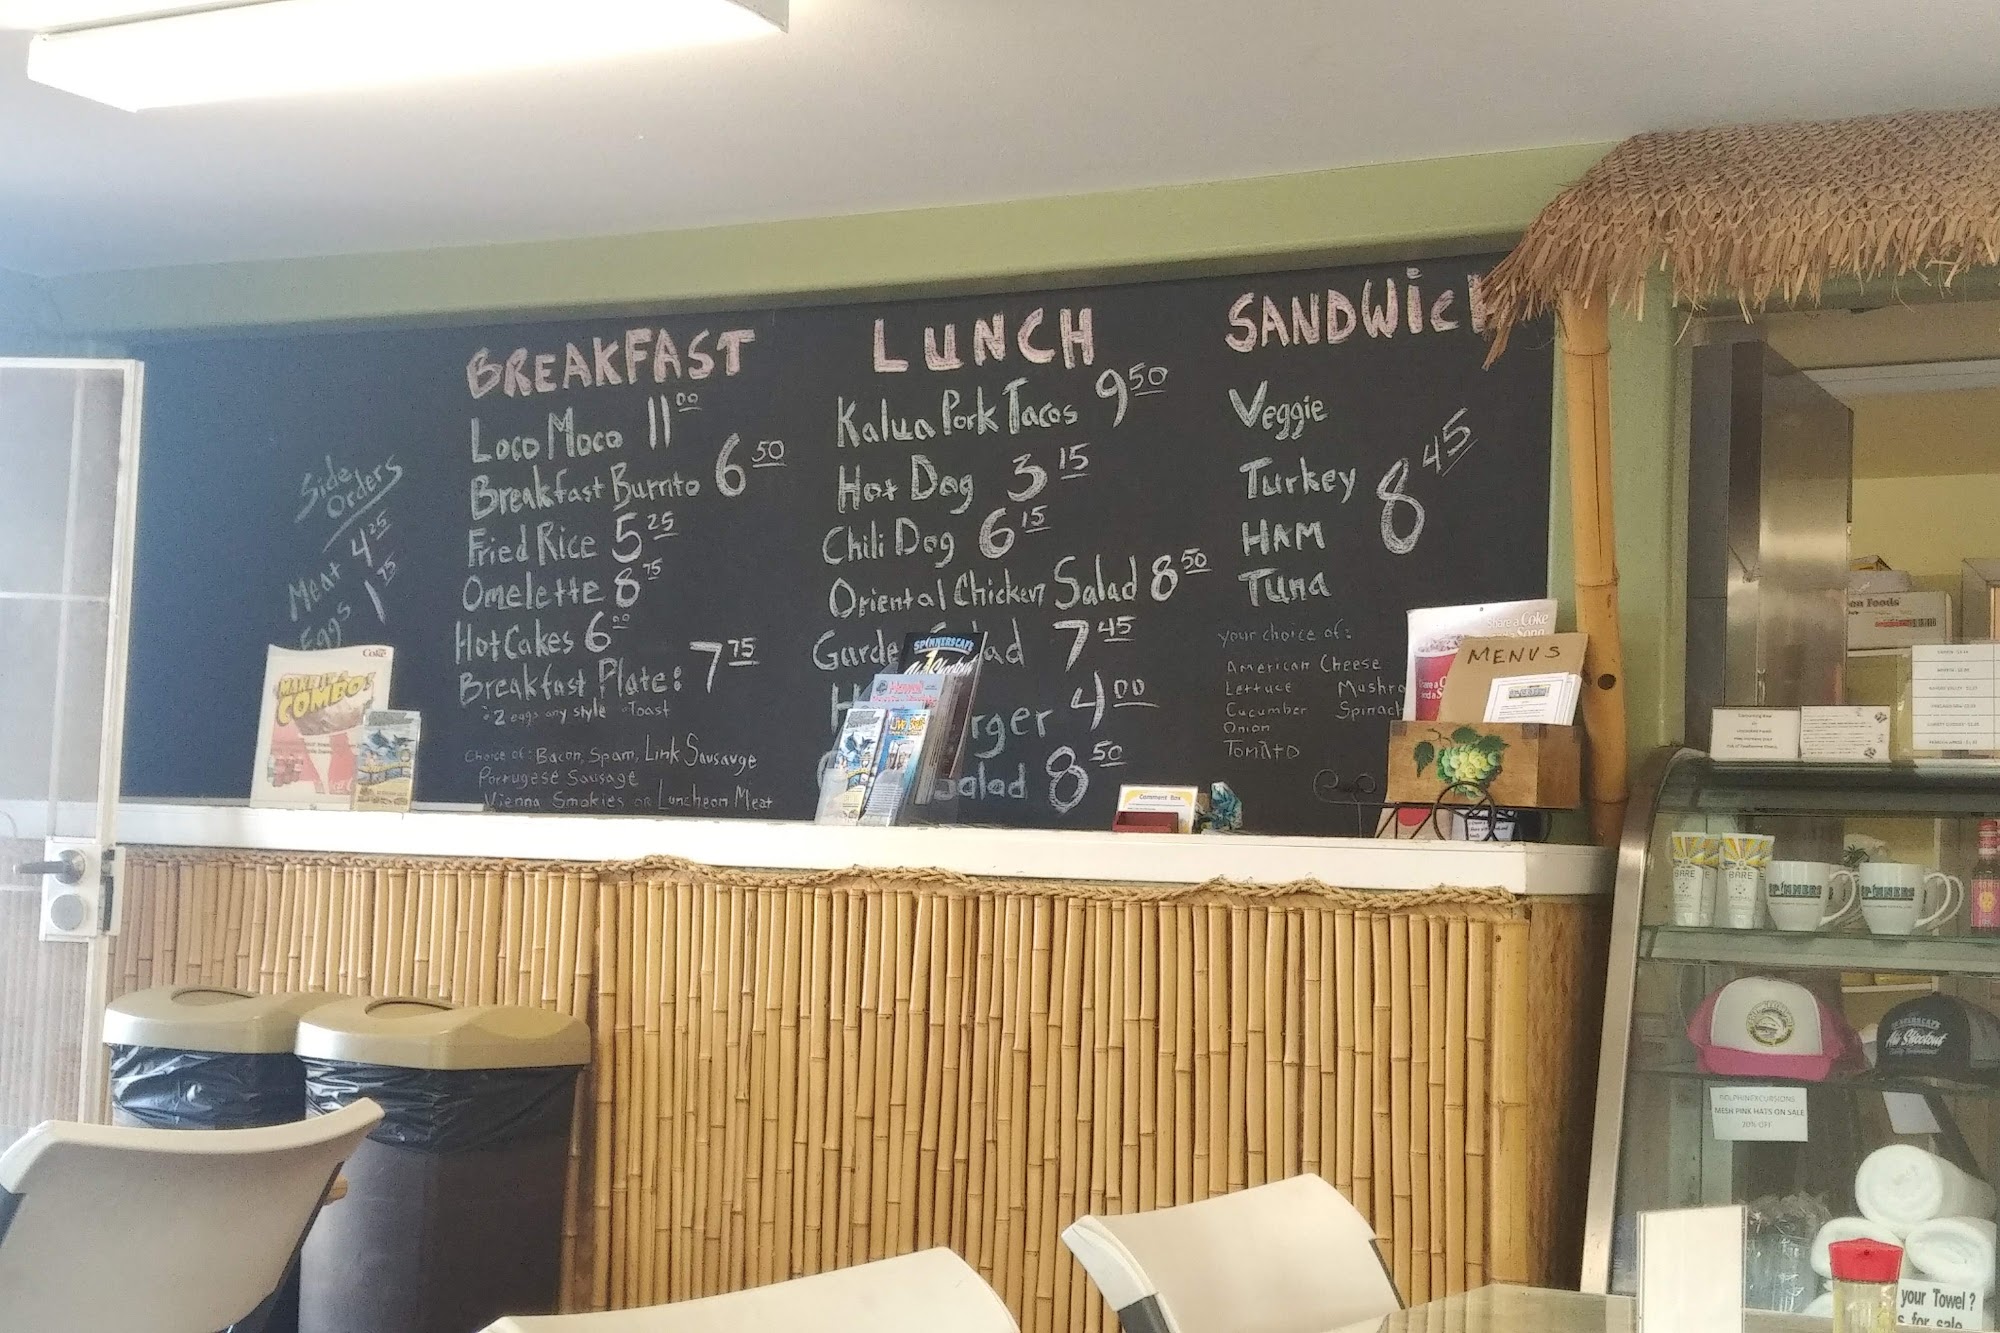 BREAKFAST
Loco Moco 11 00
Breakfast Burrito 6 50
Fried Rice 5 25
Omelette 8 75
Hot Cakes 6 00
Breakfast Plate: 7 75
2 eggs any style Toast
Choice of: Bacon, Spam, Link Sausauge
Portugese Sausage
Vienna Smokies or Luncheon Meat
Side
Orders
Meat 4 25
Eggs 1 75
LUNCH
Kalua Pork Tacos 9 50
Hot Dog 3 15
Chili Dog 6 15
Oriental Chicken Salad 8 50
Garde ad 7 45
H rger 4 00
Salad 8 50
SANDWicH
Veggie
Turkey
HAM
Tuna
8 45
your choice of:
American Cheese
Lettuce Mushro
Cucumber Spinach
Onion
TOMATO
Coke
COMBO
SPINNERSCAFE
Hawaii
Comment Box
Share a Coke
MENUS
BARE
BARE
SPINNERS
SPINNERS
SPINNERSCAFE
Ahi Shootout
DOLPHINEXCURSIONS
MESH PINK HATS ON SALE
20% OFF
your Towel?
s for sale